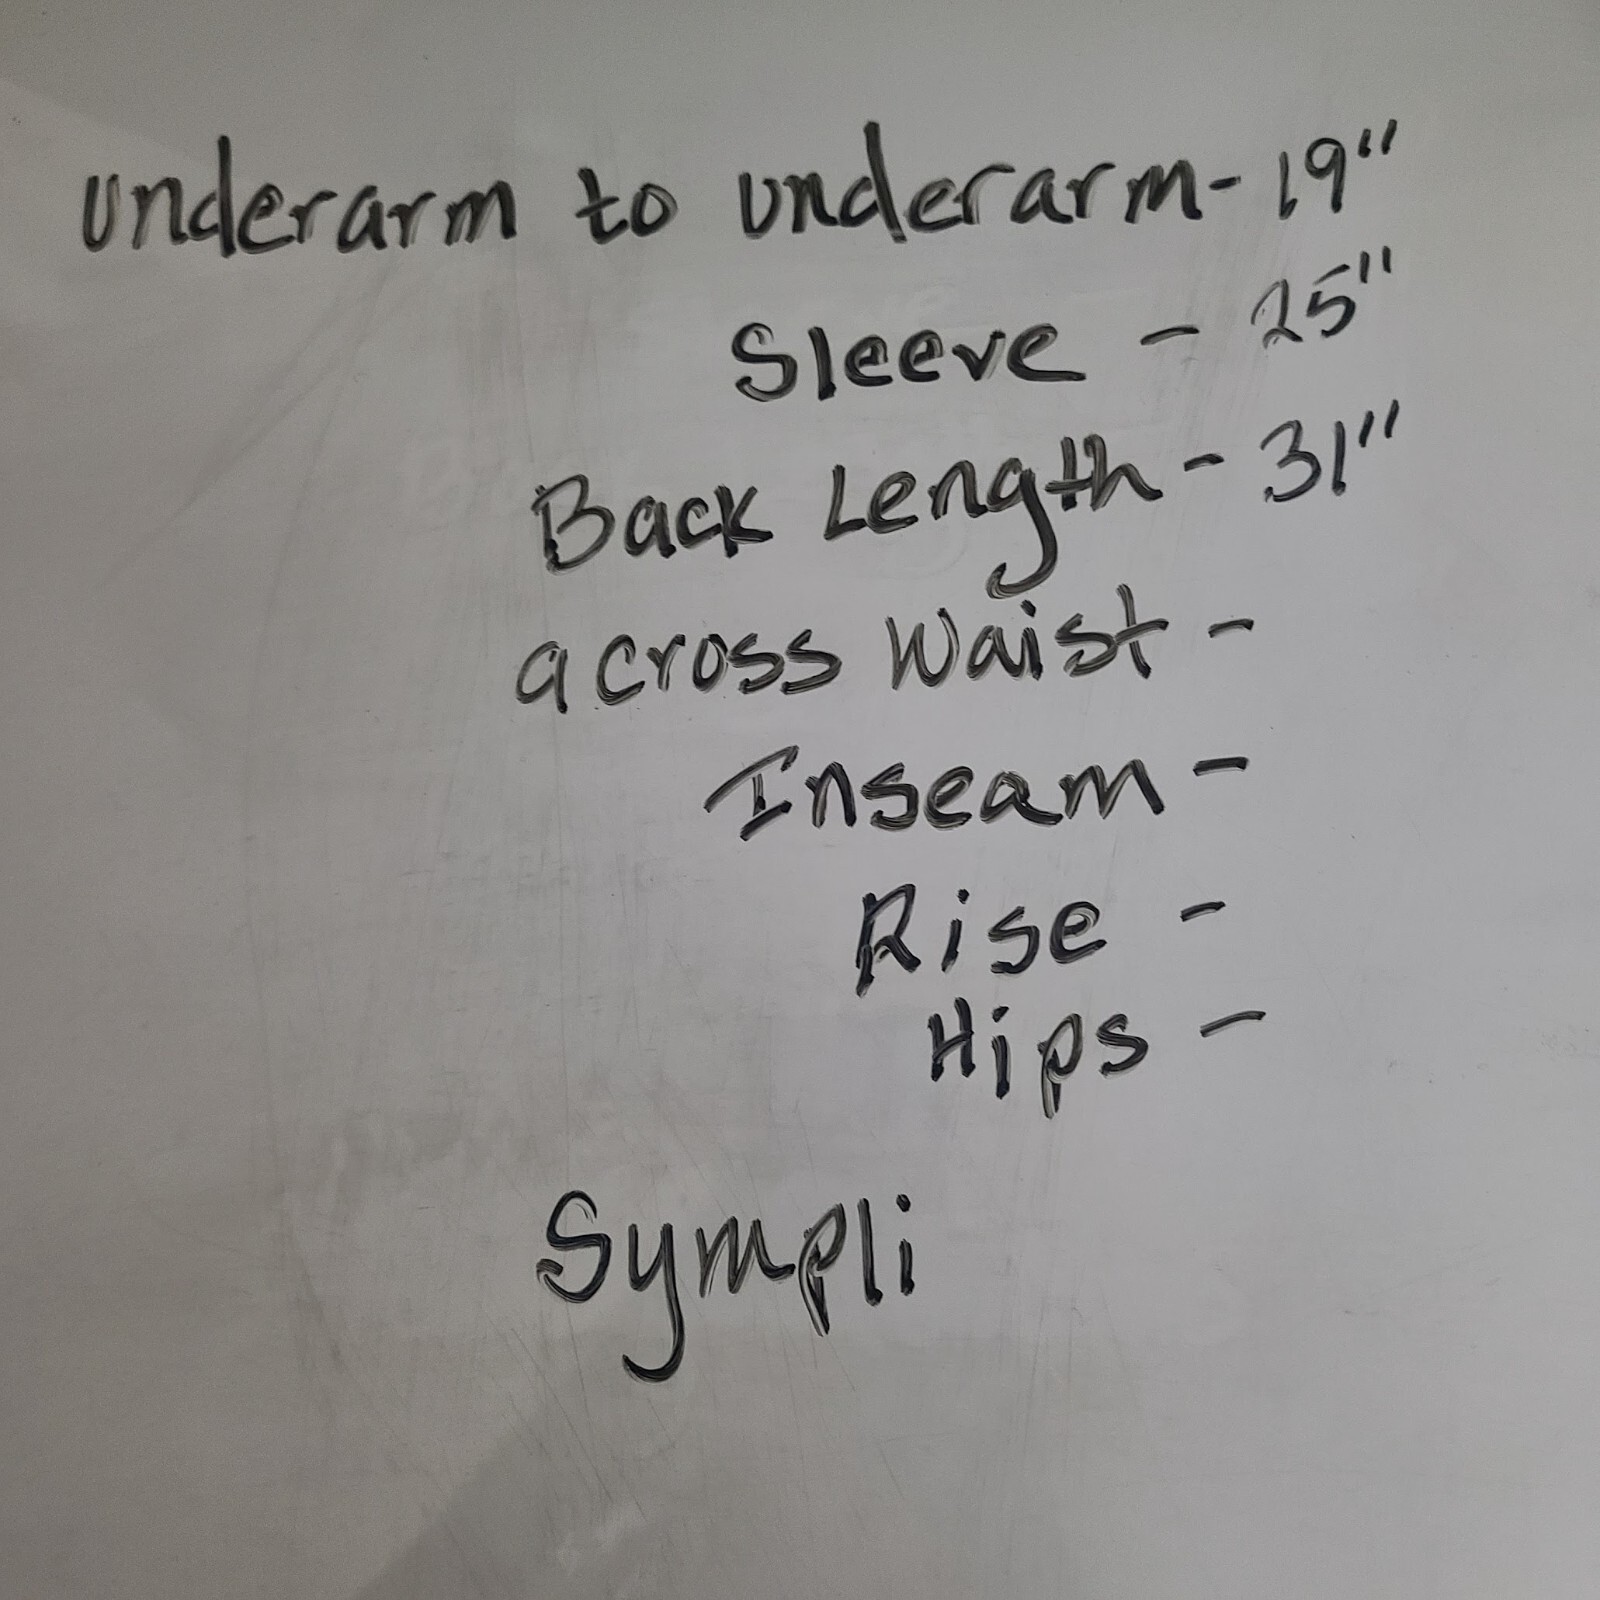 underarm to underarm - 19"
Sleeve - 25"
Back Length - 31"
across Waist -
Inseam -
Rise -
Hips -
Sympli